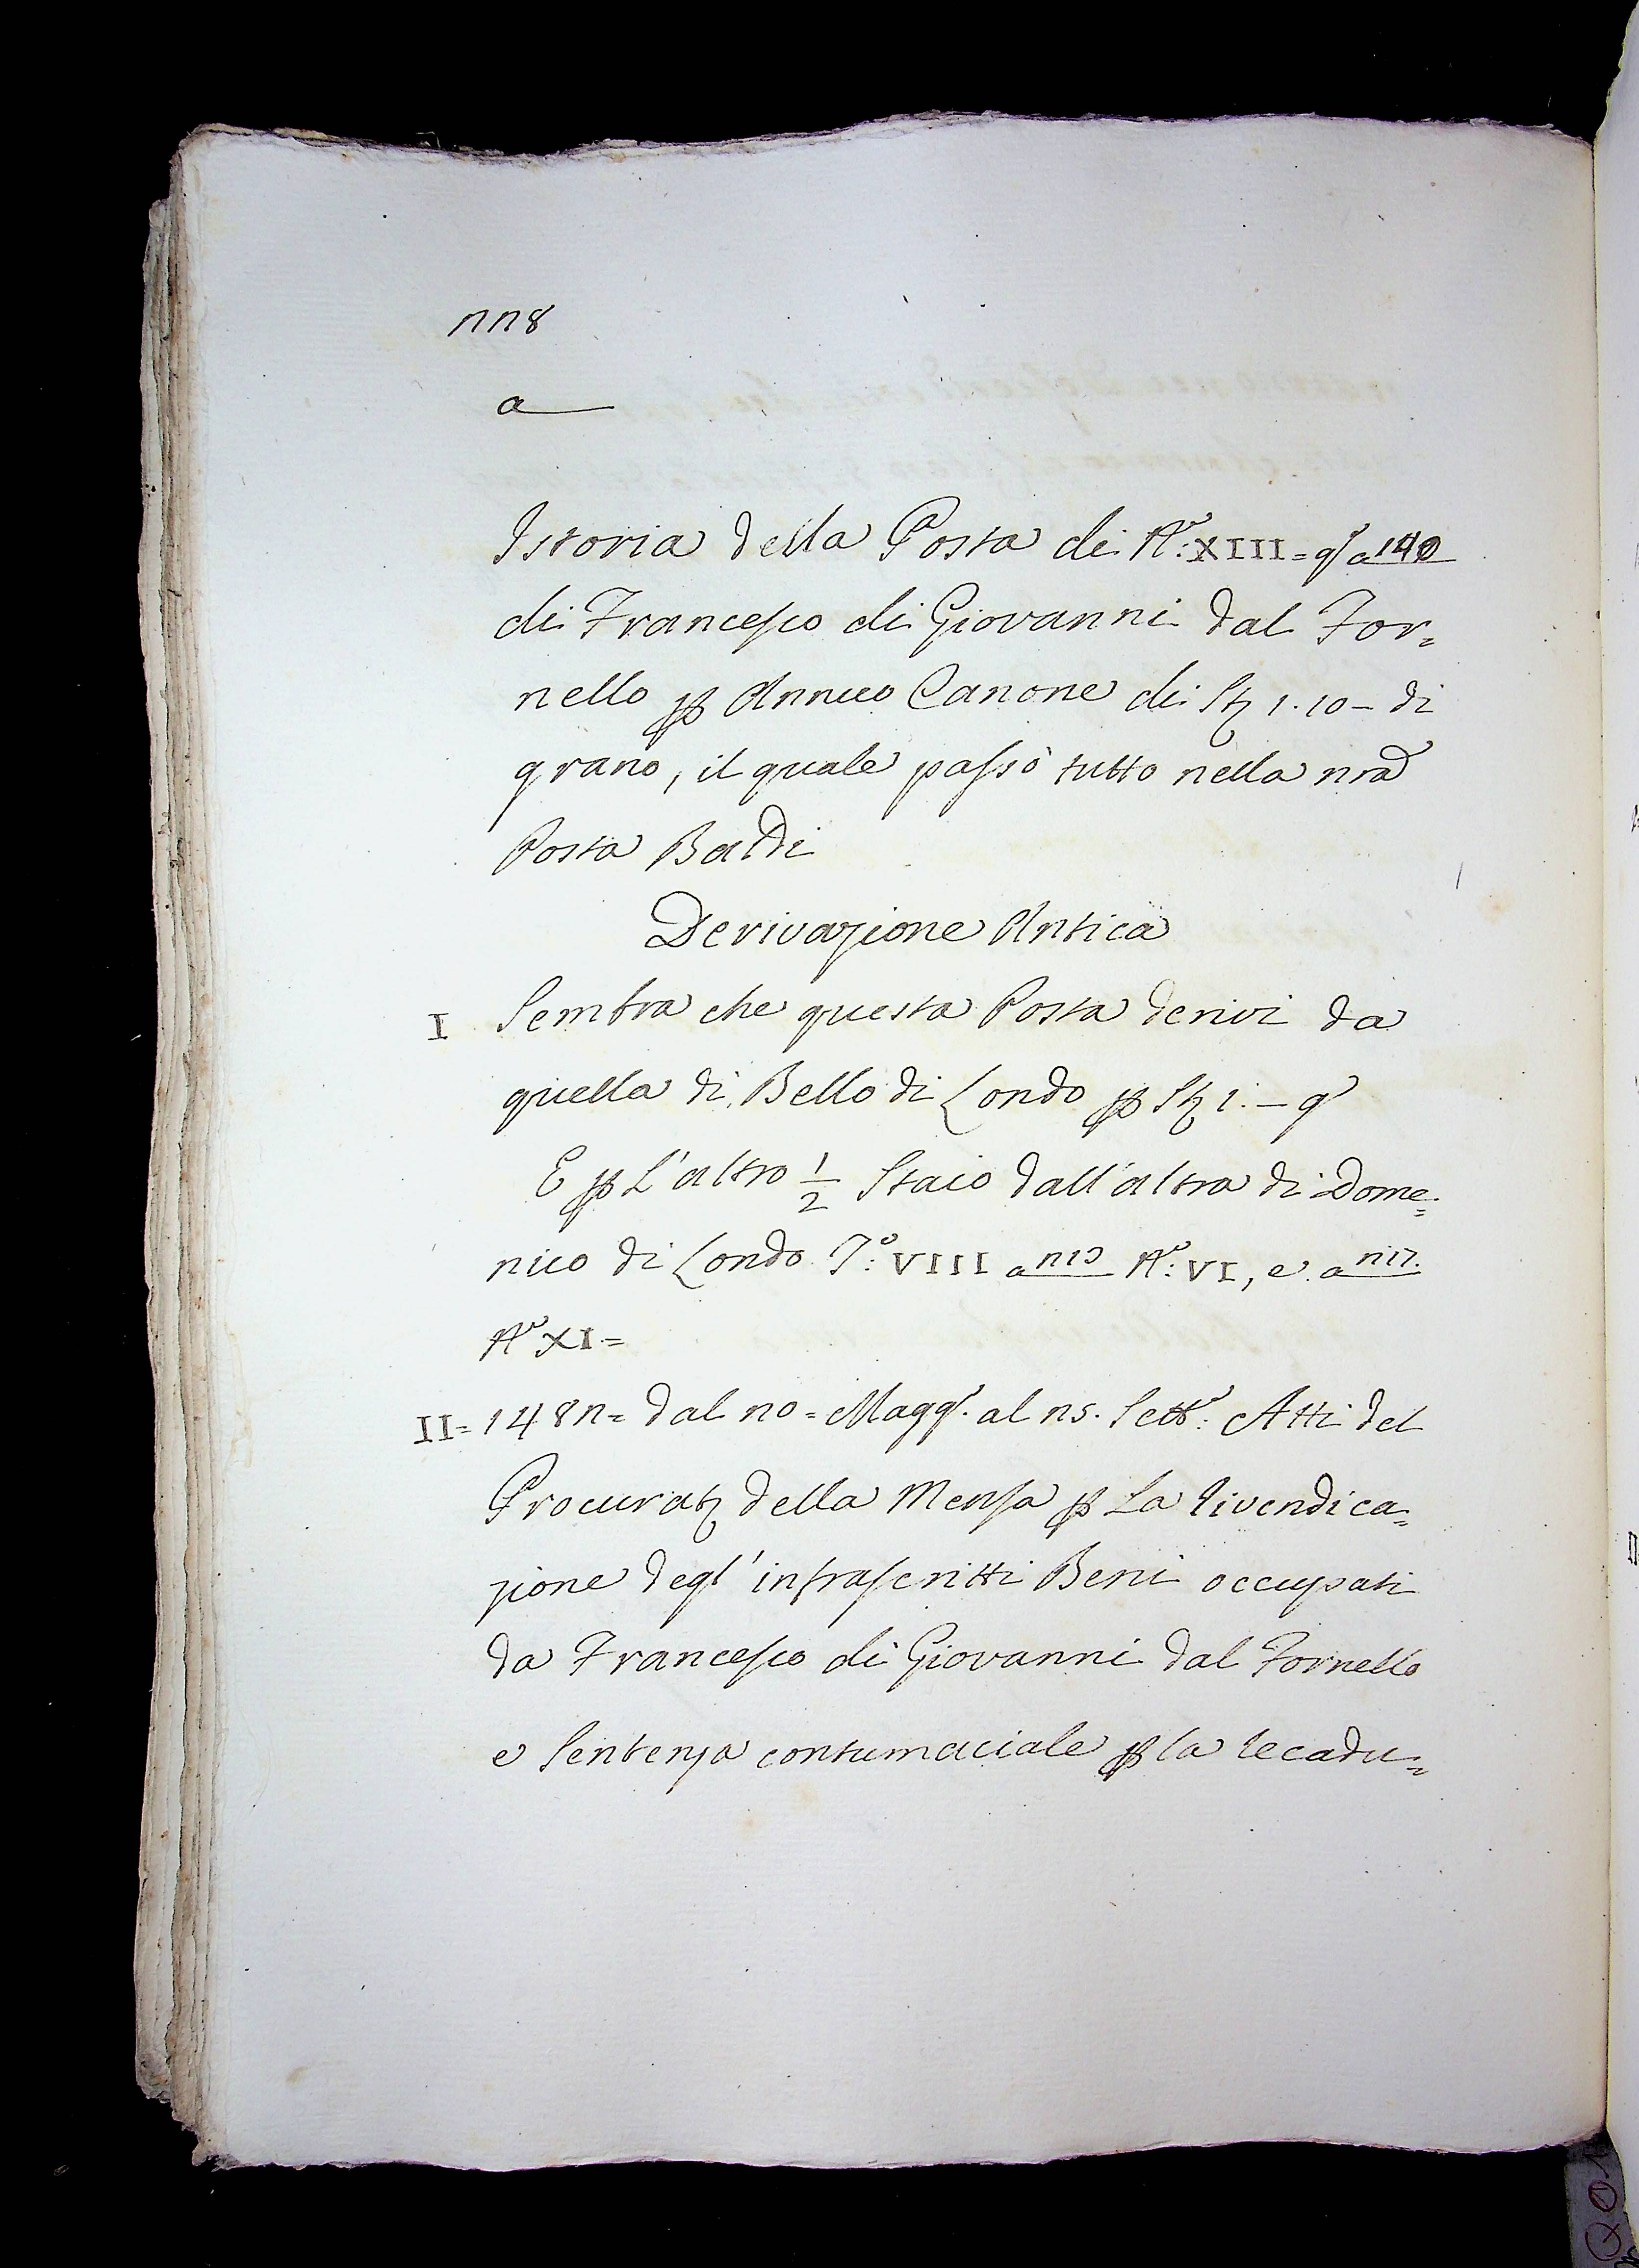 228
a
Istoria della Posta di N.º: XIII = q.º a 140
di Francesco di Giovanni dal For=
nello p Annuo Canone di St.ª 1. 10 - di
grano, il quale passò tutto nella nrã
Posta Baldi
Derivazione Antica
I Sembra che questa Posta derivi da
quella di Bello di Londo p St.ª 1. - q.º
E p L'altro 1/2 Staio dall'altra di Dome=
nico di Londo T.º: VIII a 213 N.º: VI, e a 217.
N.º XI =
II = 1482 = dal 20 = Magg.º al 25. Sett.e: Atti del
Procurat.e della Mensa p La rivendica=
zione degl'infrascritti Beni occupati
da Francesco di Giovanni dal Fornello
e Sentenza contumaciale p la recadu=